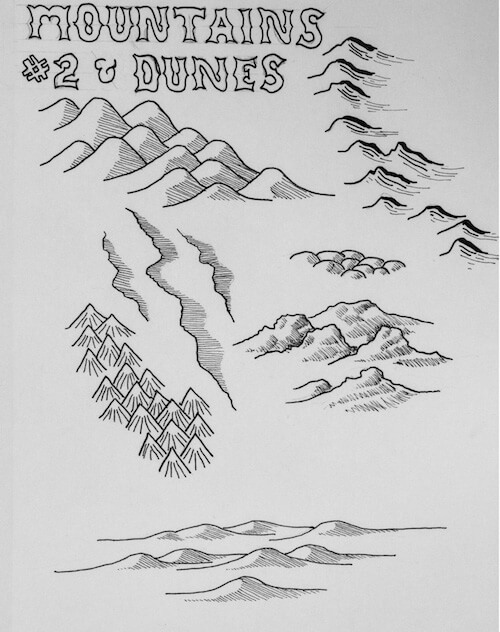 MOUNTAINS
#2 & DUNES